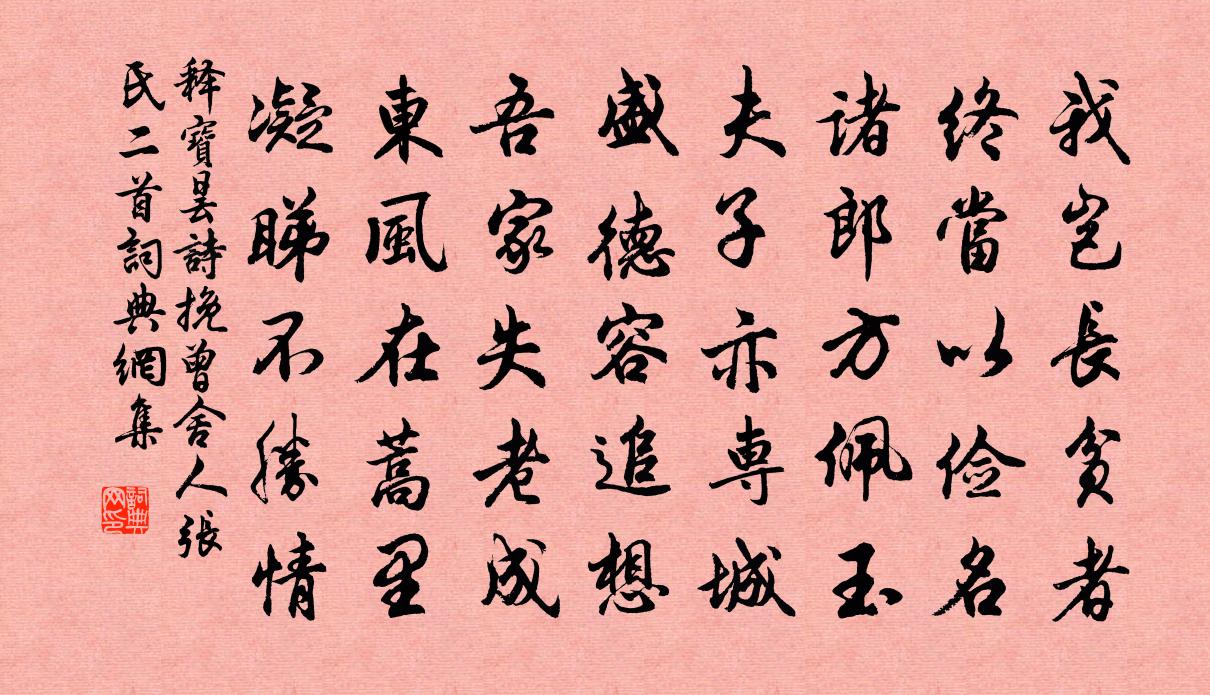 我豈長貧者
終當以儉名
諸郎方佩玉
夫子亦専城
盛德容追想
吾家失老成
東風在蒿里
凝睇不勝情
釋寶曇詩挽曾舍人張
氏二首詞典網集
詞典网印